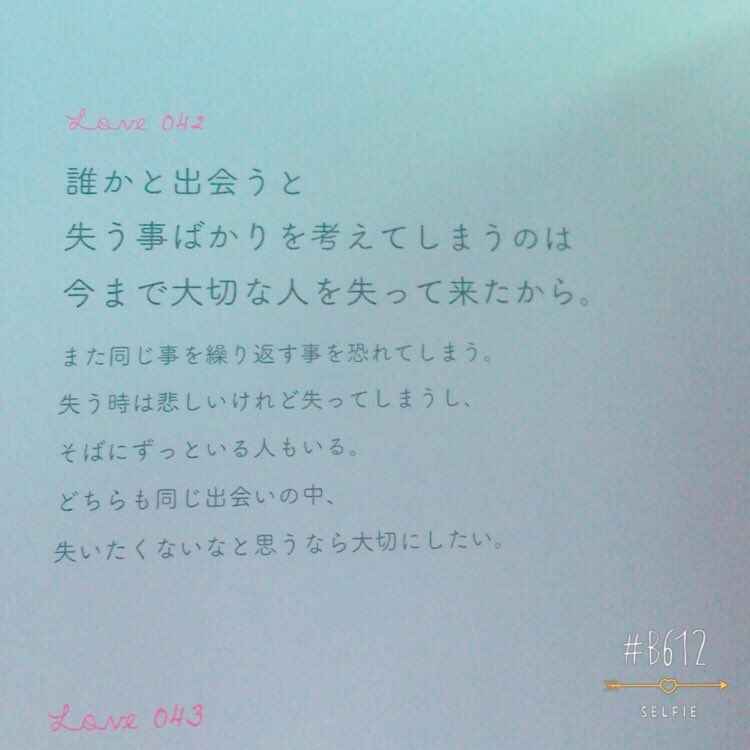 Love 042
誰かと出会うと
失う事ばかりを考えてしまうのは
今まで大切な人を失って来たから。
また同じ事を繰り返す事を恐れてしまう。
失う時は悲しいけれど失ってしまうし、
そばにずっといる人もいる。
どちらも同じ出会いの中、
失いたくないなと思うなら大切にしたい。
#B612
SELFIE
Love 043